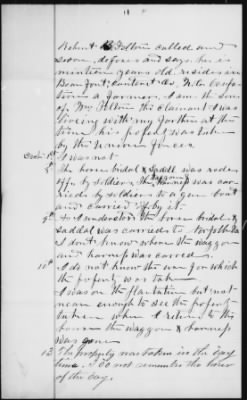 Robert Felton called and
sworn, deposes and says, he is
nineteen years old, resides in
Beaufort, Carteret Co, N.C. Occupa
tion a farmer, I am the son
of Wm Felton the claimant & was
living with my father at the
time his property was taken
by the Union forces
I was not
The horse bridal & Saddl was rode
off by soldiers, the harness was car
ried by soldiers to a gun boat
and carried off by it.
I understood the horse bridal &
saddal was carried to
I don't know where the waggon
and harness was carried.
10th I do not know the use for which
the property was taken
I was on the plantation but not
near enough to see the property
taken when I return to the
house the waggon & harness
was gone
12 The property was taken in the day
time. I do not remember the hour
of the day.